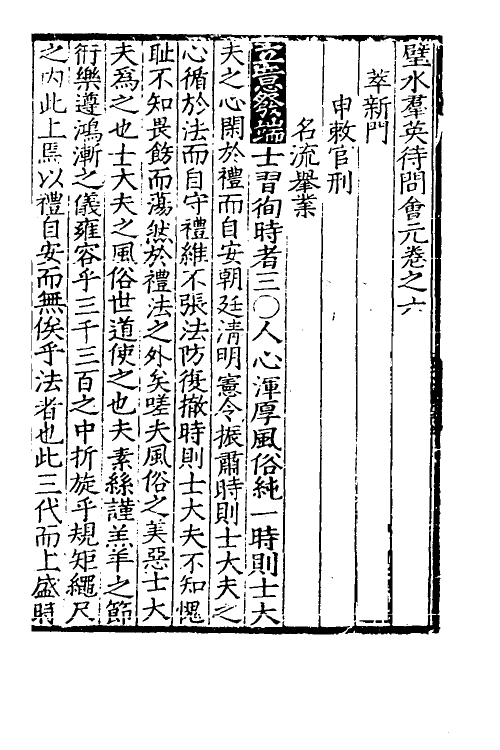 璧水羣英待問會元卷之六
萃新門
申敕官刑
名流舉業
立意發端士習徇時者三〇人心渾厚風俗純一時則士大
夫之心閑於禮而自安朝廷淸明憲令振肅時則士大夫之
心循於法而自守禮維不張法防復撤時則士大夫不知愧
耻不知畏飭而蕩然於禮法之外矣嗟夫風俗之美惡士大
夫爲之也士大夫之風俗世道使之也夫素絲謹羔羊之節
衎樂遵鴻漸之儀雍容乎三千三百之中折旋乎規矩繩尺
之内此上焉以禮自安而無俟乎法者也此三代而上盛時